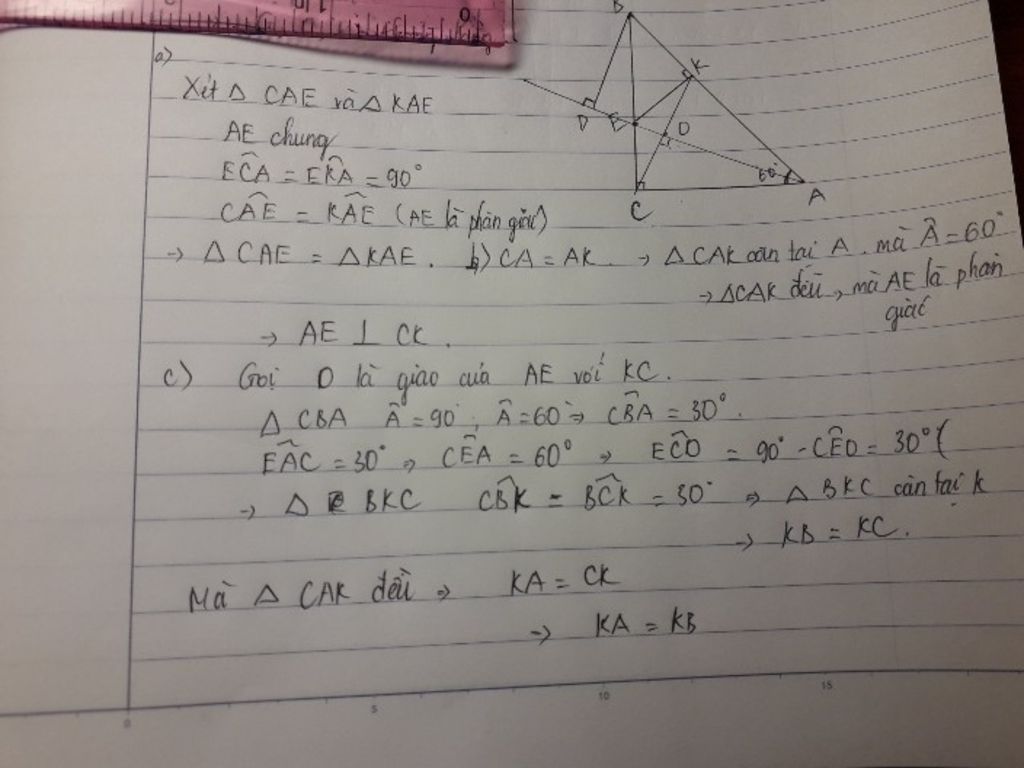 B
K
D
E
O
60°
A
C
a)
Xét Δ CAE và Δ KAE
AE chung
ECA = EKA = 90°
CAE = KAE (AE là phân giác)
→ Δ CAE = Δ KAE. b) CA = AK → Δ CAK cân tại A. mà Â = 60°
→ ΔCAK đều, mà AE là phân giác
→ AE ⊥ CK.
c) Gọi O là giao của AE với KC.
Δ CBA Â = 90°, Â = 60° → CBA = 30°.
EAC = 30° → CEA = 60° → ECO = 90° - CEO = 30° (
→ Δ BKC CBK = BCK = 30° → Δ BKC cân tại K
→ KB = KC.
Mà Δ CAK đều → KA = CK
→ KA = KB
0 5 10 15